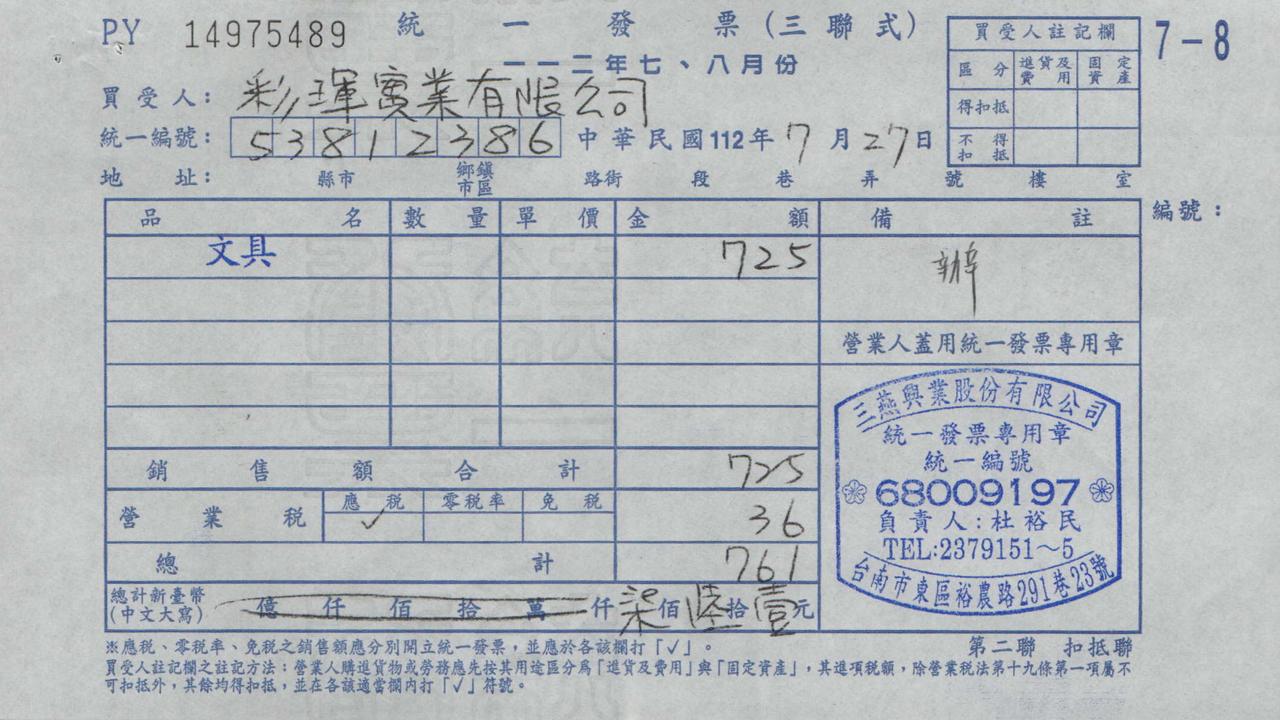 PY 14975489 統一發票(三聯式)
一一二年七、八月份
7-8
買受人註記欄
區分 進貨及費用 固定資產
得扣抵
不得扣抵
買受人: 彩琿實業有限公司
統一編號: 53812386 中華民國112年7月27日
地址: 縣市 鄉鎮市區 路街 段 巷 弄 號 樓 室
品名 數量 單價 金額 備註 編號:
文具 725 辦
營業人蓋用統一發票專用章
銷售額合計 725
營業稅 應稅 零稅率 免稅 36
✓
總計 761
總計新臺幣(中文大寫) 億仟佰拾萬仟柒佰陸拾壹元
三燕興業股份有限公司
統一發票專用章
統一編號
68009197
負責人:杜裕民
TEL:2379151~5
台南市東區裕農路291巷23號
※應稅、零稅率、免稅之銷售額應分別開立統一發票,並應於各該欄打「✓」。
第二聯 扣抵聯
買受人註記欄之註記方法:營業人購進貨物或勞務應先按其用途區分為「進貨及費用」與「固定資產」,其進項稅額,除營業稅法第十九條第一項屬不
可扣抵外,其餘均得扣抵,並在各該適當欄內打「✓」符號。